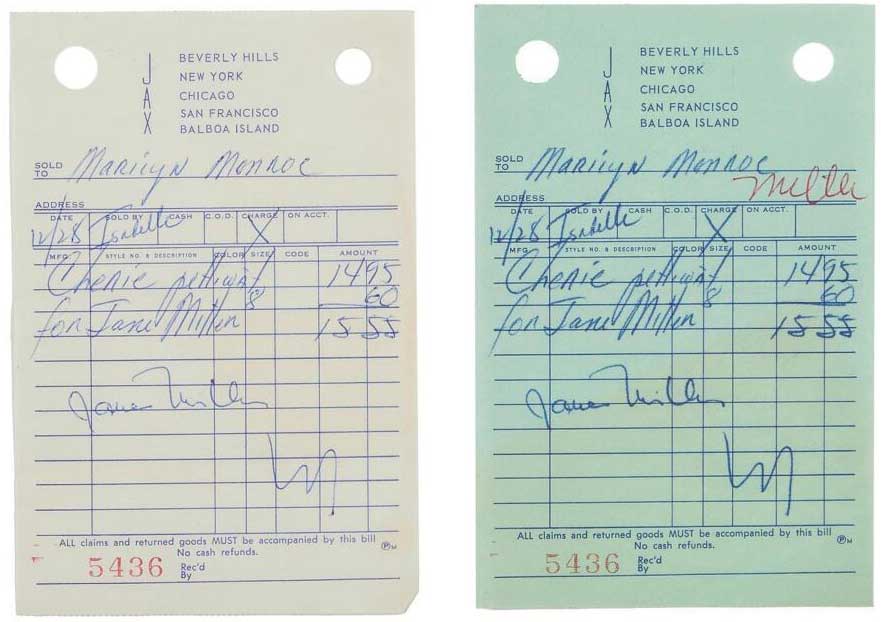 JAX
BEVERLY HILLS
NEW YORK
CHICAGO
SAN FRANCISCO
BALBOA ISLAND
SOLD TO Marilyn Monroe
ADDRESS
DATE SOLD BY CASH C.O.D. CHARGE ON ACCT.
12/28 Isabelle X
MFG. STYLE NO. & DESCRIPTION COLOR SIZE CODE AMOUNT
Cherie 1495
8 60
for Jane Miller 1555
ALL claims and returned goods MUST be accompanied by this bill
No cash refunds.
5436 Rec'd By
JAX
BEVERLY HILLS
NEW YORK
CHICAGO
SAN FRANCISCO
BALBOA ISLAND
SOLD TO Marilyn Monroe
Miller
ADDRESS
DATE SOLD BY CASH C.O.D. CHARGE ON ACCT.
12/28 Isabelle X
MFG. STYLE NO. & DESCRIPTION COLOR SIZE CODE AMOUNT
Cherie 1495
8 60
for Jane Miller 1555
ALL claims and returned goods MUST be accompanied by this bill
No cash refunds.
5436 Rec'd By